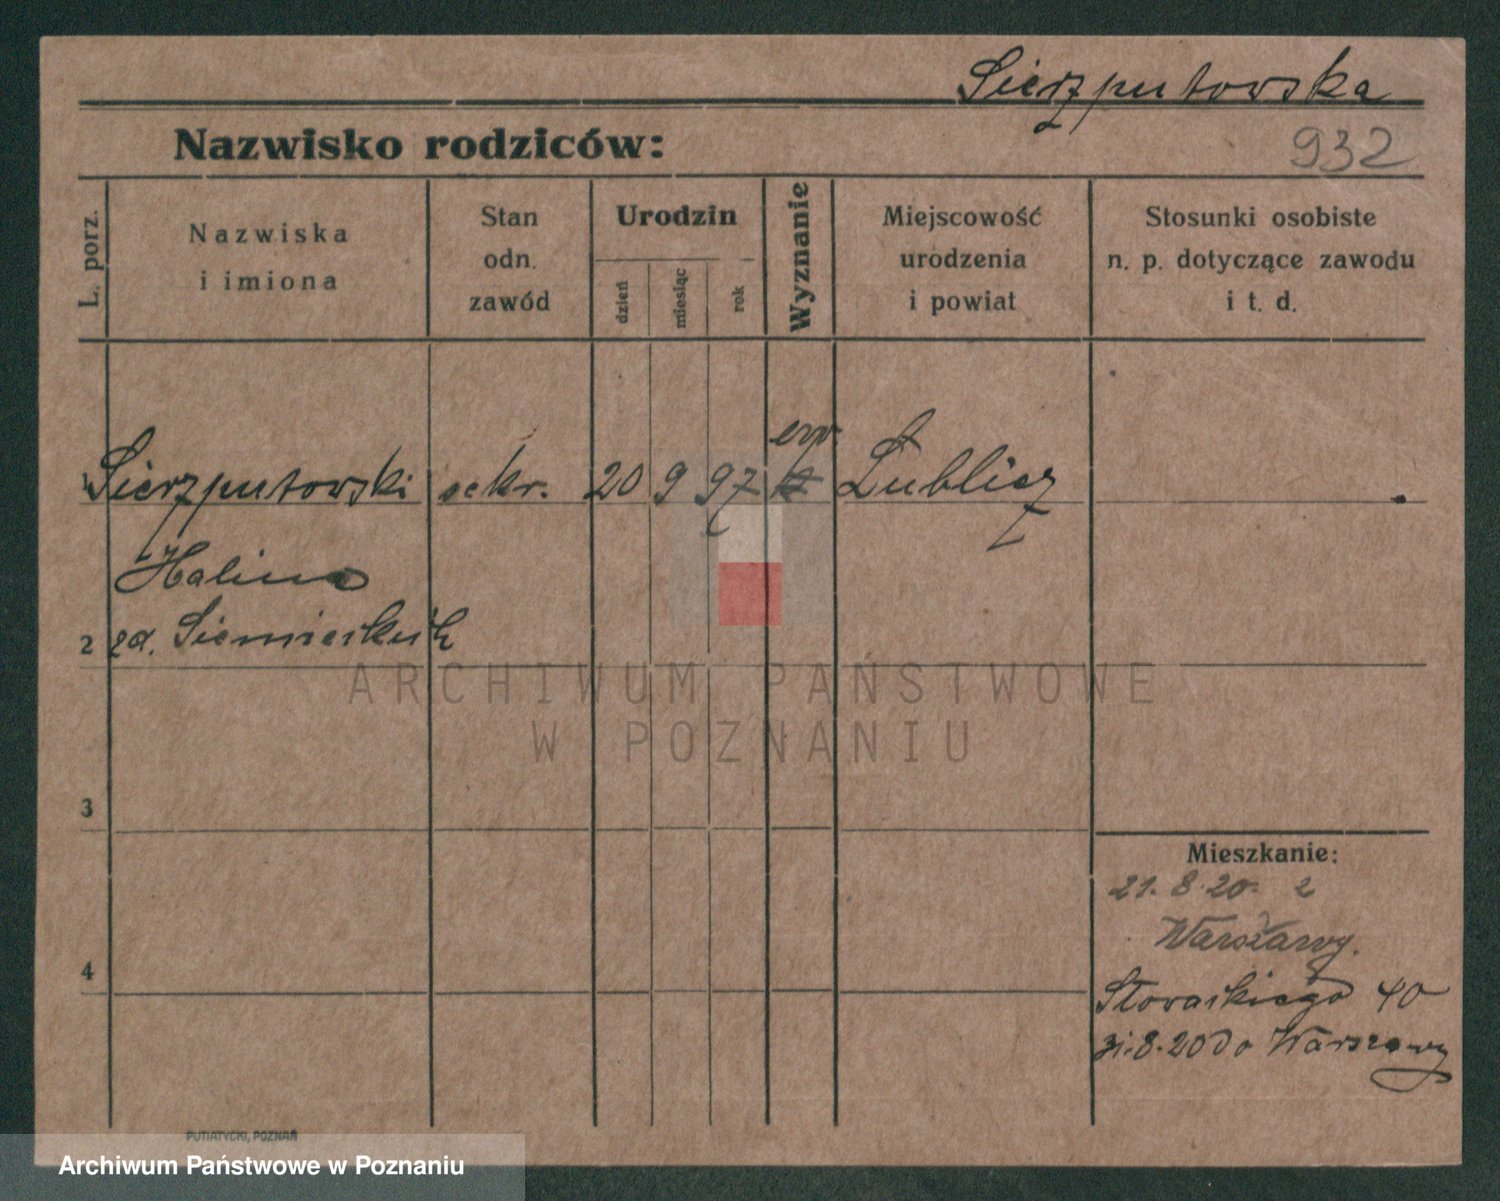 Sierzputowska
Nazwisko rodziców:
932
L. porz.
Nazwiska
i imiona
Stan
odn.
zawód
Urodzin
dzień
miesiąc
rok
Wyznanie
Miejscowość
urodzenia
i powiat
Stosunki osobiste
n. p. dotyczące zawodu
i t. d.
1 Sierzputowski sekr. 20 9 97 Lublicz
Halina
2
3
4
Mieszkanie:
21.8.20. z
Warszawy.
Słowackiego 40
31.8.20 do Warszawy
ARCHIWUM PAŃSTWOWE
W POZNANIU
PUTIATYCKI, POZNAŃ
Archiwum Państwowe w Poznaniu